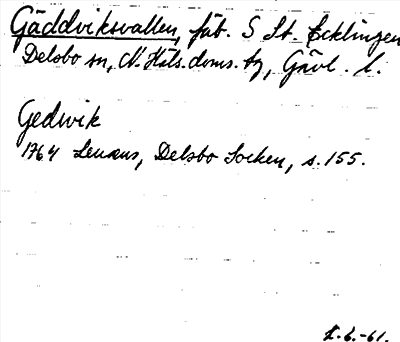 Gäddviksvallen, fäb. S St. Ecklingen
Delsbo sn, N. Häls. doms. tg, Gävl. l.
Gedwik
1764 Lenæus, Delsbo Socken, s. 155.